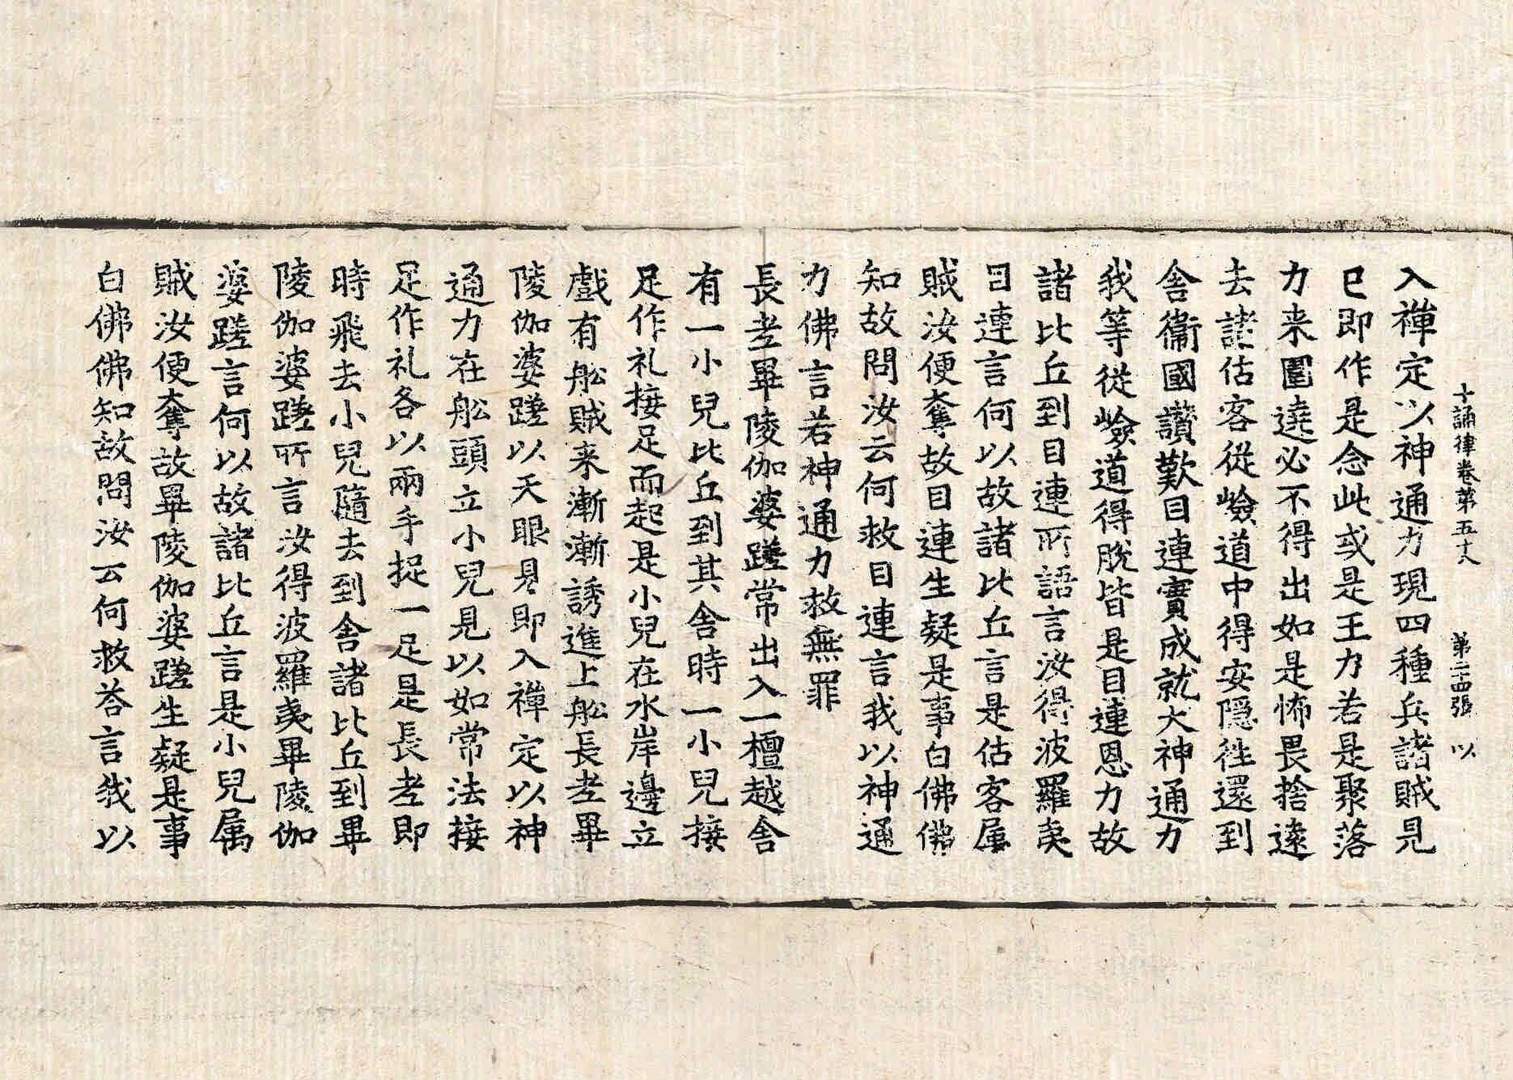 十誦律卷第五十八　第二十四張　以
入禪定以神通力現四種兵諸賊見
已即作是念此或是王力若是聚落
力来圍遶必不得出如是怖畏捨遠
去諸估客從嶮道中得安隱往還到
舍衞國讚歎目連實成就大神通力
我等從嶮道得脫皆是目連恩力故
諸比丘到目連所語言汝得波羅夷
目連言何以故諸比丘言是估客属
賊汝便奪故目連生疑是事白佛佛
知故問汝云何救目連言我以神通
力佛言若神通力救無罪
長老畢陵伽婆蹉常出入一檀越舍
有一小兒比丘到其舍時一小兒接
足作礼接足而起是小兒在水岸邊立
戲有舩賊来漸漸誘進上舩長老畢
陵伽婆蹉以天眼見即入禪定以神
通力在舩頭立小兒見以如常法接
足作礼各以兩手捉一足是長老即
時飛去小兒隨去到舍諸比丘到畢
陵伽婆蹉所言汝得波羅夷畢陵伽
婆蹉言何以故諸比丘言是小兒属
賊汝便奪故畢陵伽婆蹉生疑是事
白佛佛知故問汝云何救荅言我以